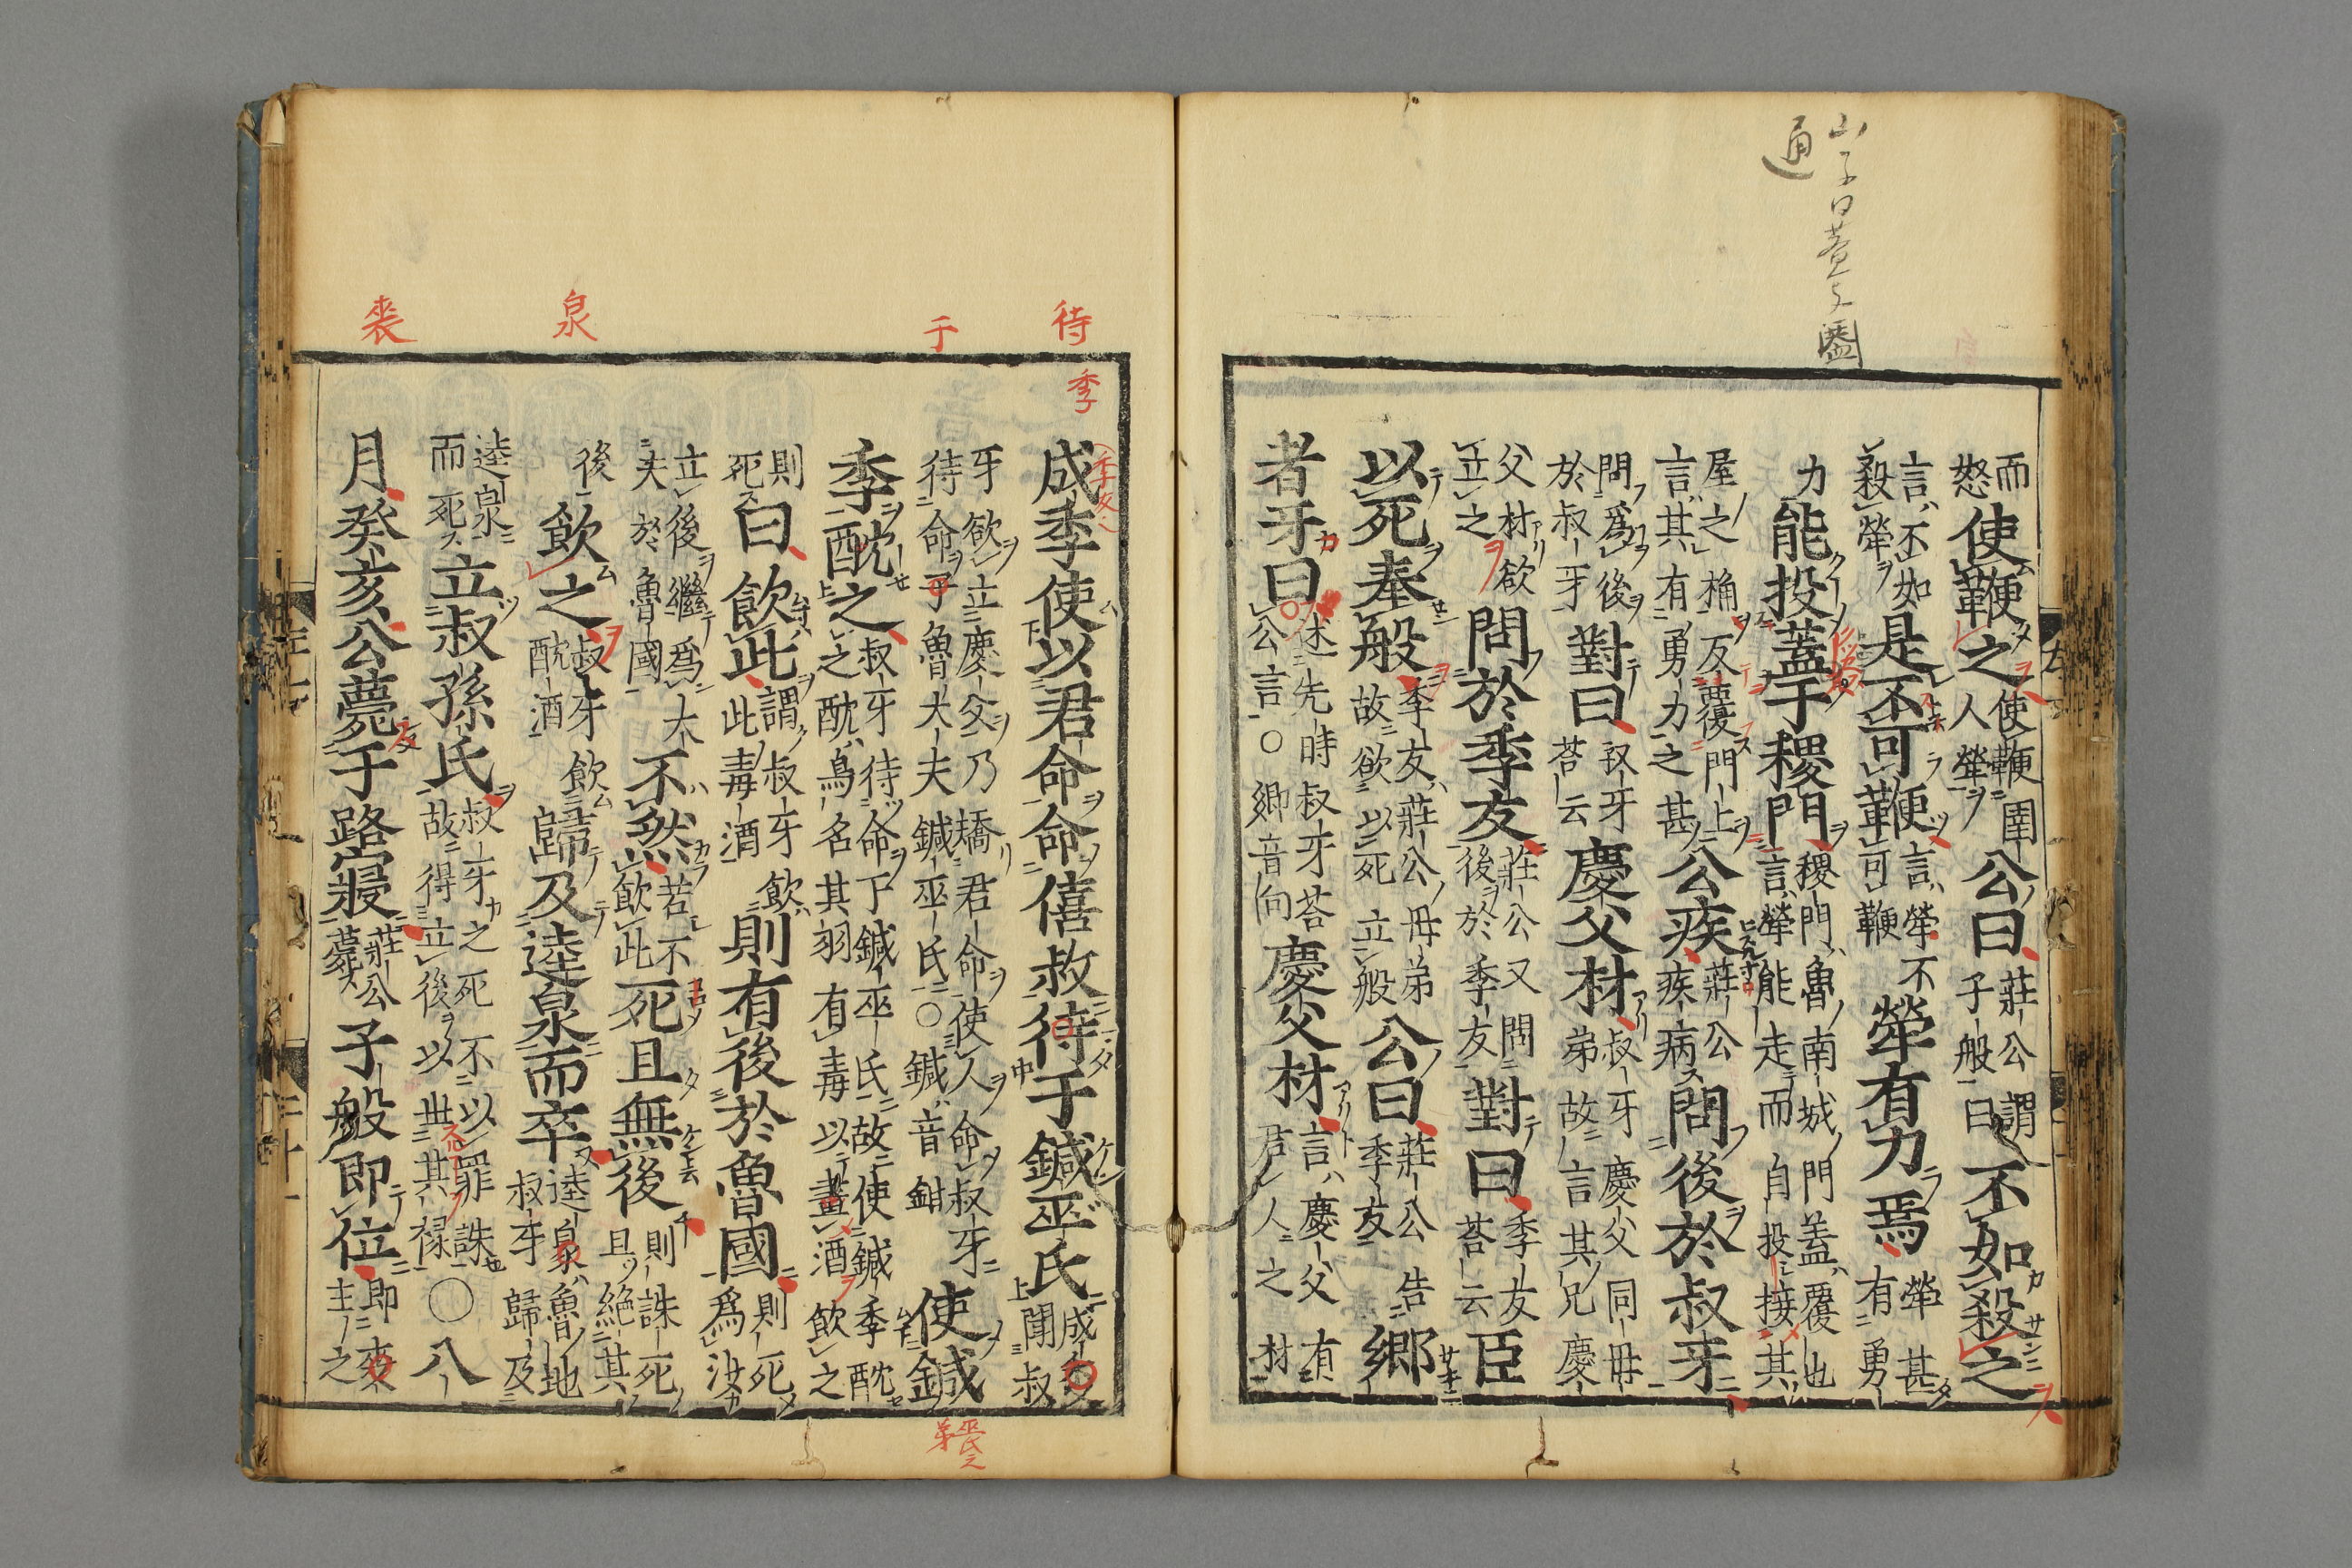 山子曰蓋文
通
而怒使鞭之使鞭圉人犖公曰莊公謂子般曰不如殺之
言不如殺犖是不可鞭言犖不可鞭犖有力焉犖甚有勇
力能投蓋于稷門稷門魯南城門蓋覆也言犖能走而自投接其
屋之桷反覆門上言其有勇力之甚公疾莊公疾病問後於叔牙
問為後於叔牙對曰叔牙荅云慶父材叔牙慶父同母弟故言其兄慶
父材欲立之問於季友莊公又問後於季友對曰季友荅云臣
以死奉般季友莊公母弟故欲以死立般公曰莊公告季友鄉
者牙曰述先時叔牙荅公言○鄉音向慶父材言慶父有君人之材
待
于
泉
喪
季
成季使以君命命僖叔待于鍼巫氏成季聞叔
牙欲立慶父乃矯君命使人命叔牙待命于魯大夫鍼巫氏○鍼音鉗使鍼
季酖之叔牙待命于鍼巫氏故使鍼季酖之酖鳥名其羽有毒以畫酒飲之
則死曰飲此謂叔牙飲此毒酒則有後於魯國則死為汝
立後繼為大夫於魯國不然若不飲此死且無後則誅死且絕其
後飲之叔牙飲酖酒歸及逵泉而卒逵泉魯地叔牙歸及
逵泉而死立叔孫氏叔牙之死不以罪誅故得立後以世其祿○八
月癸亥公薨于路寢莊公薨子般即位即喪主之
巫氏之
弟